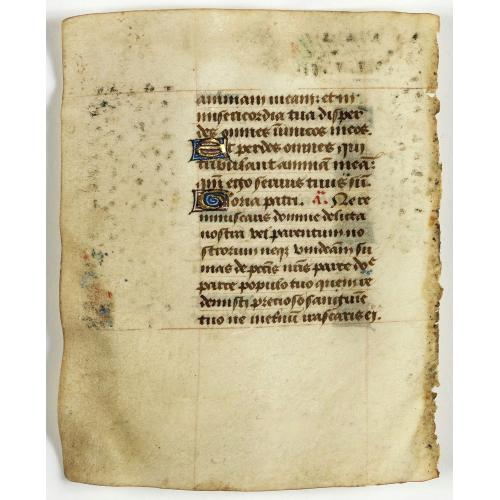 animam meam: et in
misericordia tua disper
des omnes inimicos meos.
Et perdes omnes qui
tribulant animā meā:
qm̄ ego servus tuus sū.
Gloria patri. Ne re
miniscaris domine delicta
nostra vel parentum no
strorum neqz vindictam su
mas de pctīs nrīs parce dn̄e
parce populo tuo quem re
demisti precioso sanguine
tuo ne in eternū irascaris ei.